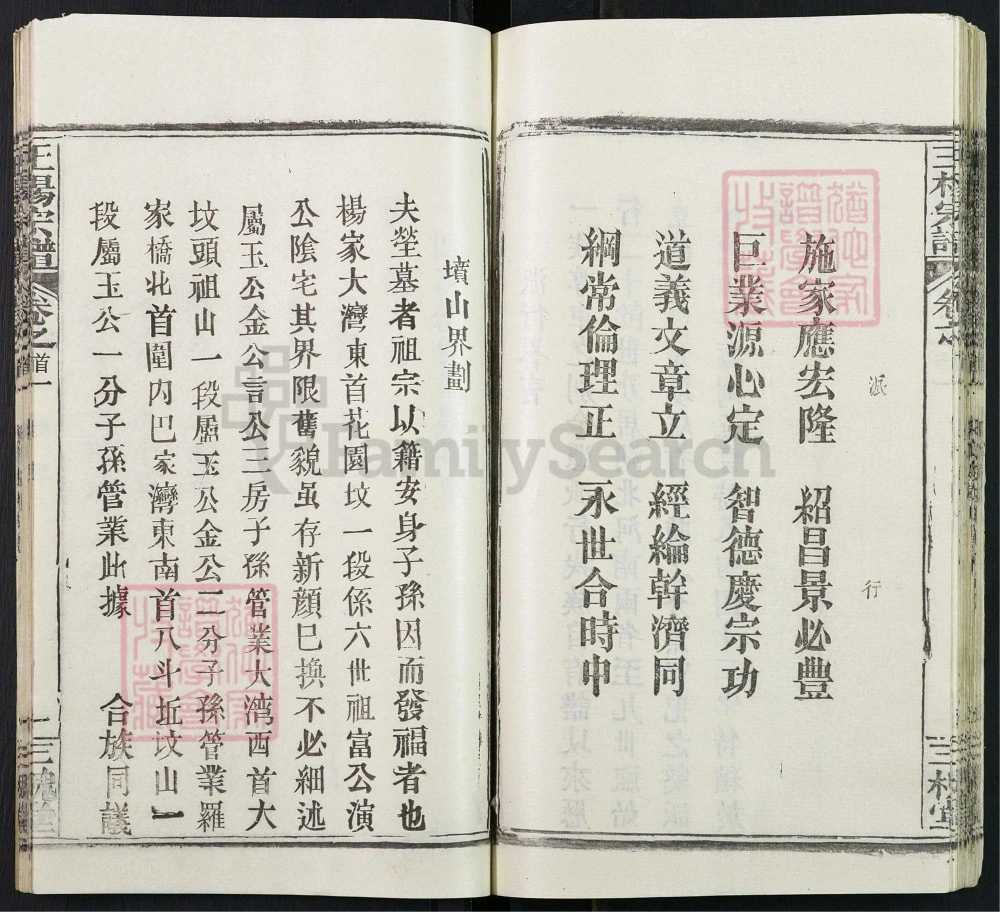 派行
施家應宏隆 紹昌景必豐
巨業源心定 智德慶宗功
道義文章立 經綸幹濟同
綱常倫理正 永世合時中
墳山界劃
夫塋墓者祖宗以籍安身子孫因而發福者也
楊家大灣東首花園坟一段係六世祖富公演
公陰宅其界限舊貌虽存新顏巳換不必細述
屬玉公金公言公三房子孫管業大湾西首大
坟頭祖山一段屬玉公金公二分子孫管業羅
家橋北首圍内巴家灣東南首八斗坵坟山一
段屬玉公一分子孫管業此據 合族同議
宗譜
卷之首
三槐堂
FamilySearch